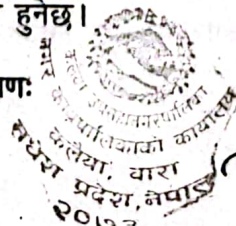 हुनेछ।
णः
कलैया उपमहानगरपालिका
नगर कार्यपालिकाको कार्यालय
कलैया, बारा
मधेश प्रदेश, नेपाल
२०७३